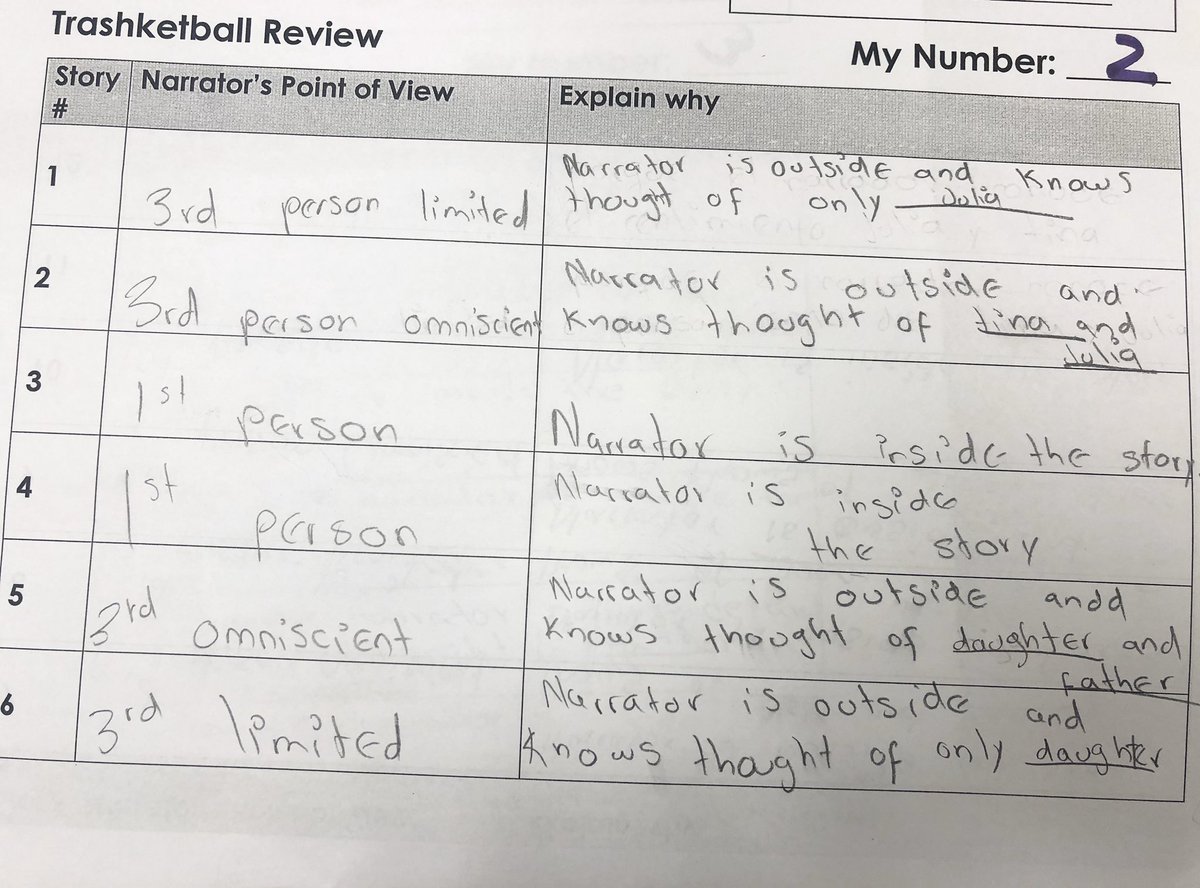 Trashketball Review
My Number: 2
Story # Narrator's Point of View Explain why
1 3rd person limited Narrator is outside and knows
thought of only Julia
2 3rd person omniscient Narrator is outside and
knows thought of tina and
Julia
3 1st person Narrator is inside the story
4 1st person Narrator is inside
the story
5 3rd omniscient Narrator is outside andd
knows thought of daughter and
father
6 3rd limited Narrator is outside and
knows thaught of only daughter